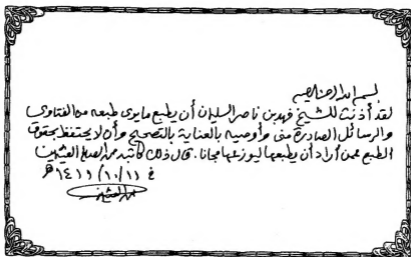 بسم الله الرحمن الرحيم
لقد أذنت للشيخ فهد بن ناصر السليمان أن يطبع ما يرى طبعه من الفتاوى
والرسائل الصادرة مني وأوصيه بالعناية بالتصحيح وأن لا يحتفظ بحقوق
الطبع عمن أراد أن يطبعها ليوزعها مجانا. قال ذلك كاتبه محمد الصالح العثيمين
في ١١/١٠/١٤١١هـ